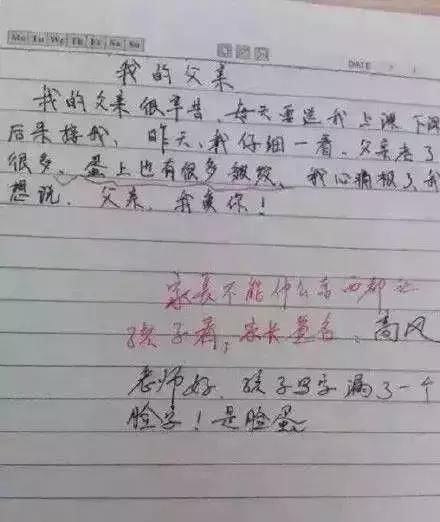 Mo Tu We Th Fr Sa Su
DATE
我的父亲
我的父亲很辛苦、每天要送我上课下课
后来接我、昨天、我仔细一看、父亲老了
很多、蛋上也有很多皱纹、我心痛极了、我
想说、父亲、我爱你！
家长不能什么东西都让
孩子看，家长签名、高风
老师好、孩子写字漏了一个
脸字！是脸蛋